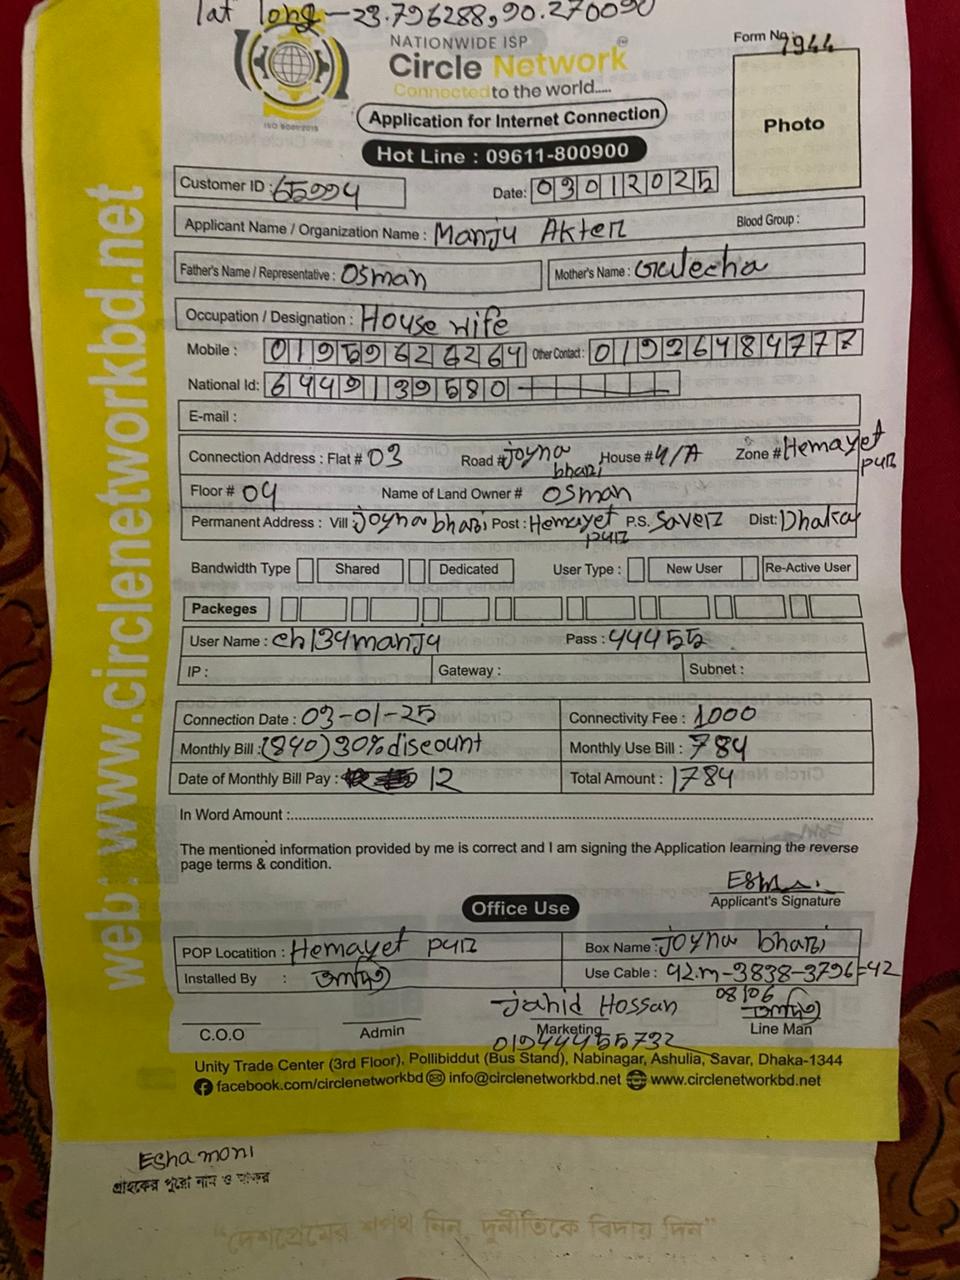 lat long - 23.796288, 90.270090
NATIONWIDE ISP
Circle Network
Connected to the world.....
ISO 9001:2015
Form No: 7944
Application for Internet Connection
Photo
Hot Line : 09611-800900
Customer ID : 65994
Date: 03012025
Applicant Name / Organization Name : Manju Akter
Blood Group :
Father's Name / Representative : Osman
Mother's Name : Galecha
Occupation / Designation : House wife
Mobile : 01959626264 Other Contact : 01926484777
National Id: 6449139580
E-mail :
Connection Address : Flat # 03 Road # Joyna bhari House # 4/A Zone # Hemayet pur
Floor # 04 Name of Land Owner # Osman
Permanent Address : Vill Joyna bhari Post : Hemayet pur P.S. Saver Dist: Dhaka
Bandwidth Type Shared Dedicated User Type : New User Re-Active User
Packeges
User Name : ch134manju Pass : 444455
IP : Gateway : Subnet :
Connection Date : 03-01-25 Connectivity Fee : 1000
Monthly Bill : (840) 30% discount Monthly Use Bill : 784
Date of Monthly Bill Pay : 12 Total Amount : 1784
In Word Amount :
The mentioned information provided by me is correct and I am signing the Application learning the reverse
page terms & condition.
Applicant's Signature
Office Use
POP Locatition : Hemayet pur Box Name : Joyna bhari
Installed By : Use Cable : 42.m-3838-3796=42
Jahid Hossan 08/06
C.O.O Admin Marketing Line Man
01944455732
Unity Trade Center (3rd Floor), Pollibiddut (Bus Stand), Nabinagar, Ashulia, Savar, Dhaka-1344
facebook.com/circlenetworkbd info@circlenetworkbd.net www.circlenetworkbd.net
web: www.circlenetworkbd.net
Esha moni
গ্রাহকের পুরো নাম ও স্বাক্ষর
"দেশপ্রেমের শপথ নিন, দুর্নীতিকে বিদায় দিন"